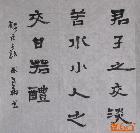 君子之交淡
若水小人之
交甘若醴